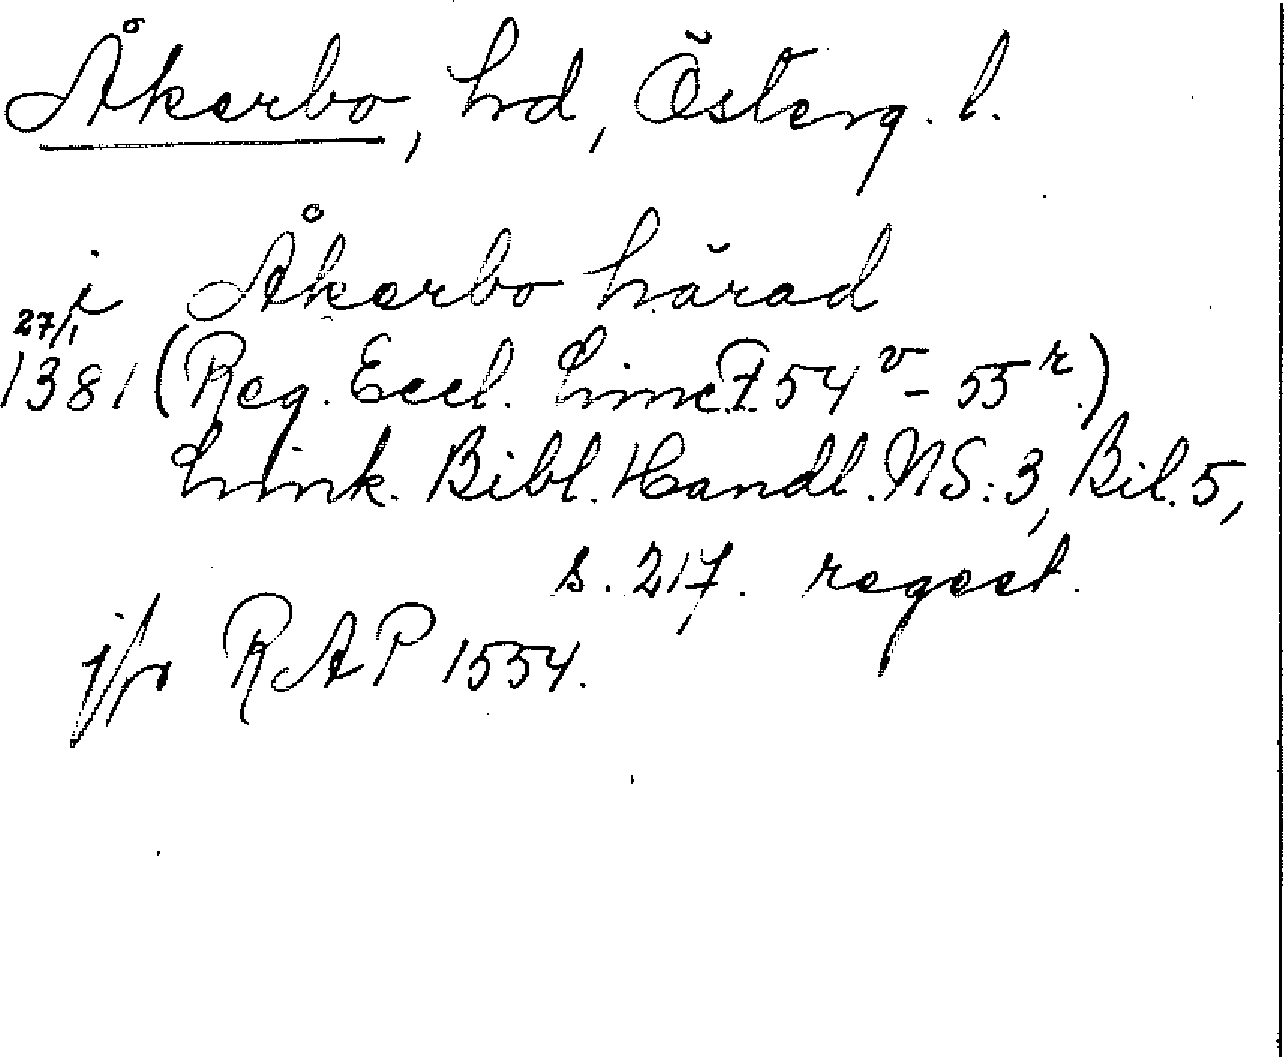 Åkerbo, hd, Österg. l.
i Åkerbo härad
27/1
1381 (Reg. Eccl. Linc. F. 54v - 55r.)
Link. Bibl. Handl. NS: 3, Bil. 5,
s. 217. regest.
jfr RAP 1554.